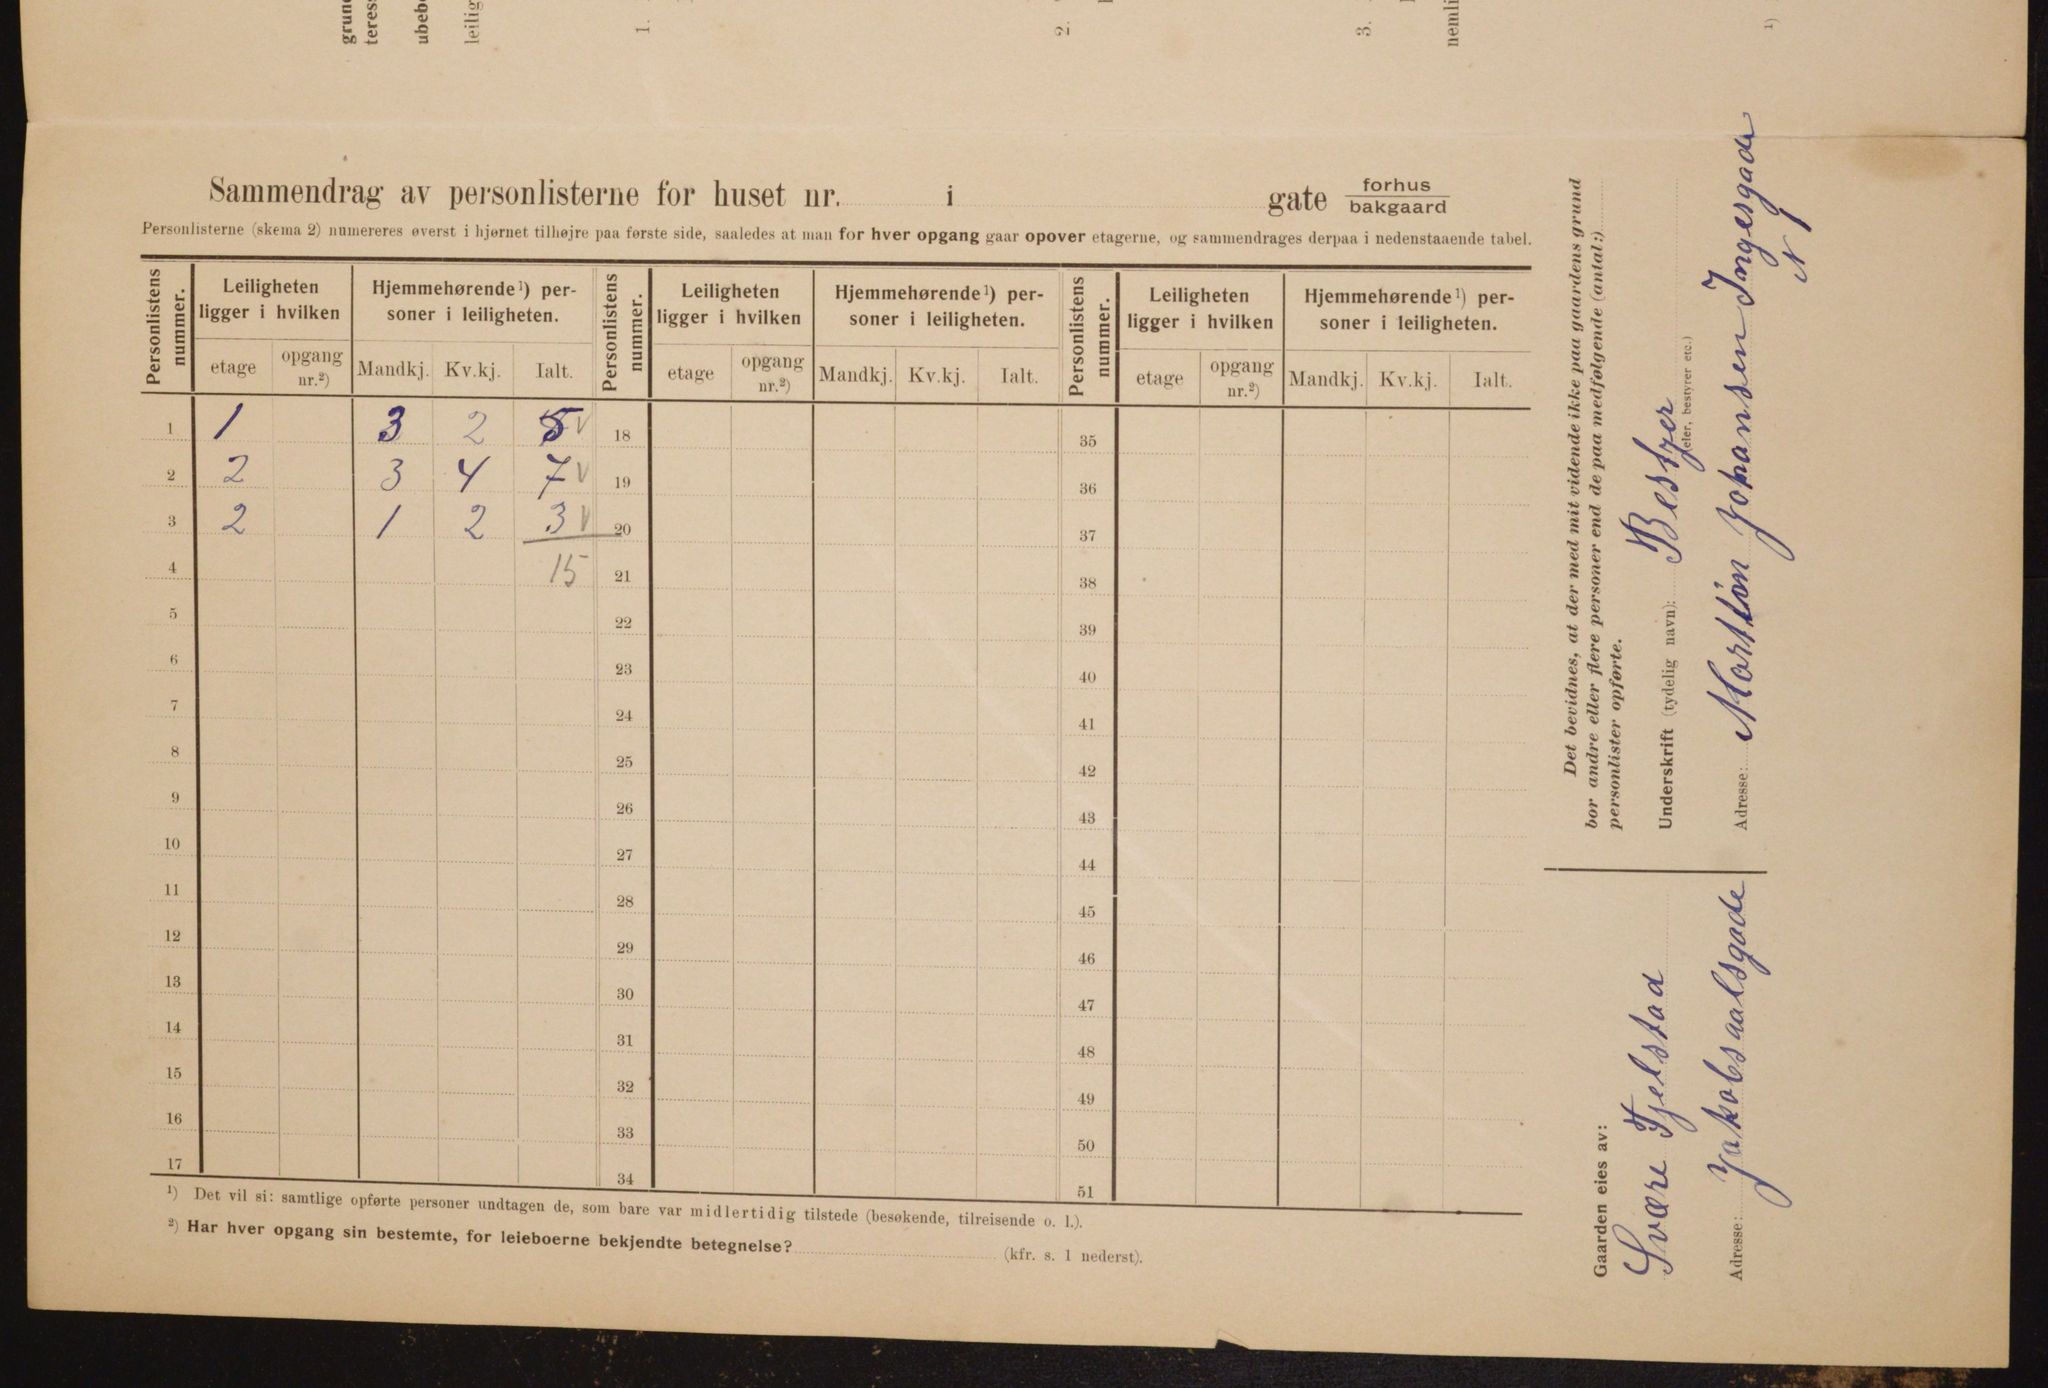 grund
teress
ubebo
leilig
1.
2.
3.
nemli
1)
Sammendrag av personlisterne for huset nr. i gate forhus
bakgaard
Personlisterne (skema 2) numereres øverst i hjørnet tilhøjre paa første side, saaledes at man for hver opgang gaar opover etagerne, og sammendrages derpaa i nedenstaaende tabel.
Personlistens nummer. Leiligheten ligger i hvilken Hjemmehørende¹) personer i leiligheten. Personlistens nummer. Leiligheten ligger i hvilken Hjemmehørende¹) personer i leiligheten. Personlistens nummer. Leiligheten ligger i hvilken Hjemmehørende¹) personer i leiligheten.
etage opgang nr.²) Mandkj. Kv.kj. Ialt. etage opgang nr.²) Mandkj. Kv.kj. Ialt. etage opgang nr.²) Mandkj. Kv.kj. Ialt.
1 1 3 2 5 V 18 35
2 2 3 4 7 V 19 36
3 2 1 2 3 V 20 37
4 15 21 38
5 22 39
6 23 40
7 24 41
8 25 42
9 26 43
10 27 44
11 28 45
12 29 46
13 30 47
14 31 48
15 32 49
16 33 50
17 34 51
¹) Det vil si: samtlige opførte personer undtagen de, som bare var midlertidig tilstede (besøkende, tilreisende o. l.).
²) Har hver opgang sin bestemte, for leieboerne bekjendte betegnelse? (kfr. s. 1 nederst).
Det bevidnes, at der med mit vidende ikke paa gaardens grund
bor andre eller flere personer end de paa medfølgende (antal:)
personlister opførte.
Underskrift (tydelig navn): Bestyer
(eier, bestyrer etc.)
Adresse: Martin Johansen Ingesgade
N 1
Gaarden eies av:
Svære Fjelstad
Adresse: Jakobsaalsgade